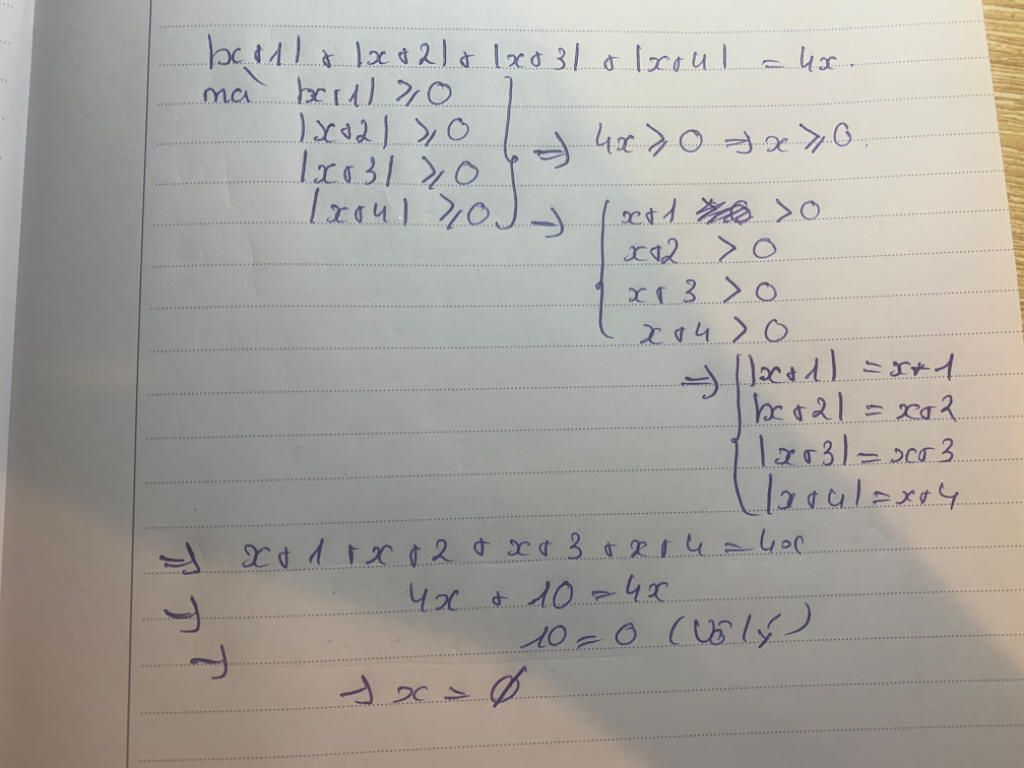 |x+1| + |x+2| + |x+3| + |x+4| = 4x.
mà |x+1| ≥ 0
|x+2| ≥ 0
|x+3| ≥ 0
|x+4| ≥ 0
⇒ 4x ≥ 0 ⇒ x ≥ 0.
⇒ x+1 > 0
x+2 > 0
x+3 > 0
x+4 > 0
⇒ |x+1| = x+1
|x+2| = x+2
|x+3| = x+3
|x+4| = x+4
⇒ x+1+x+2+x+3+x+4 = 4x
⇒ 4x + 10 = 4x
⇒ 10 = 0 (Vô lý)
⇒ x = ∅